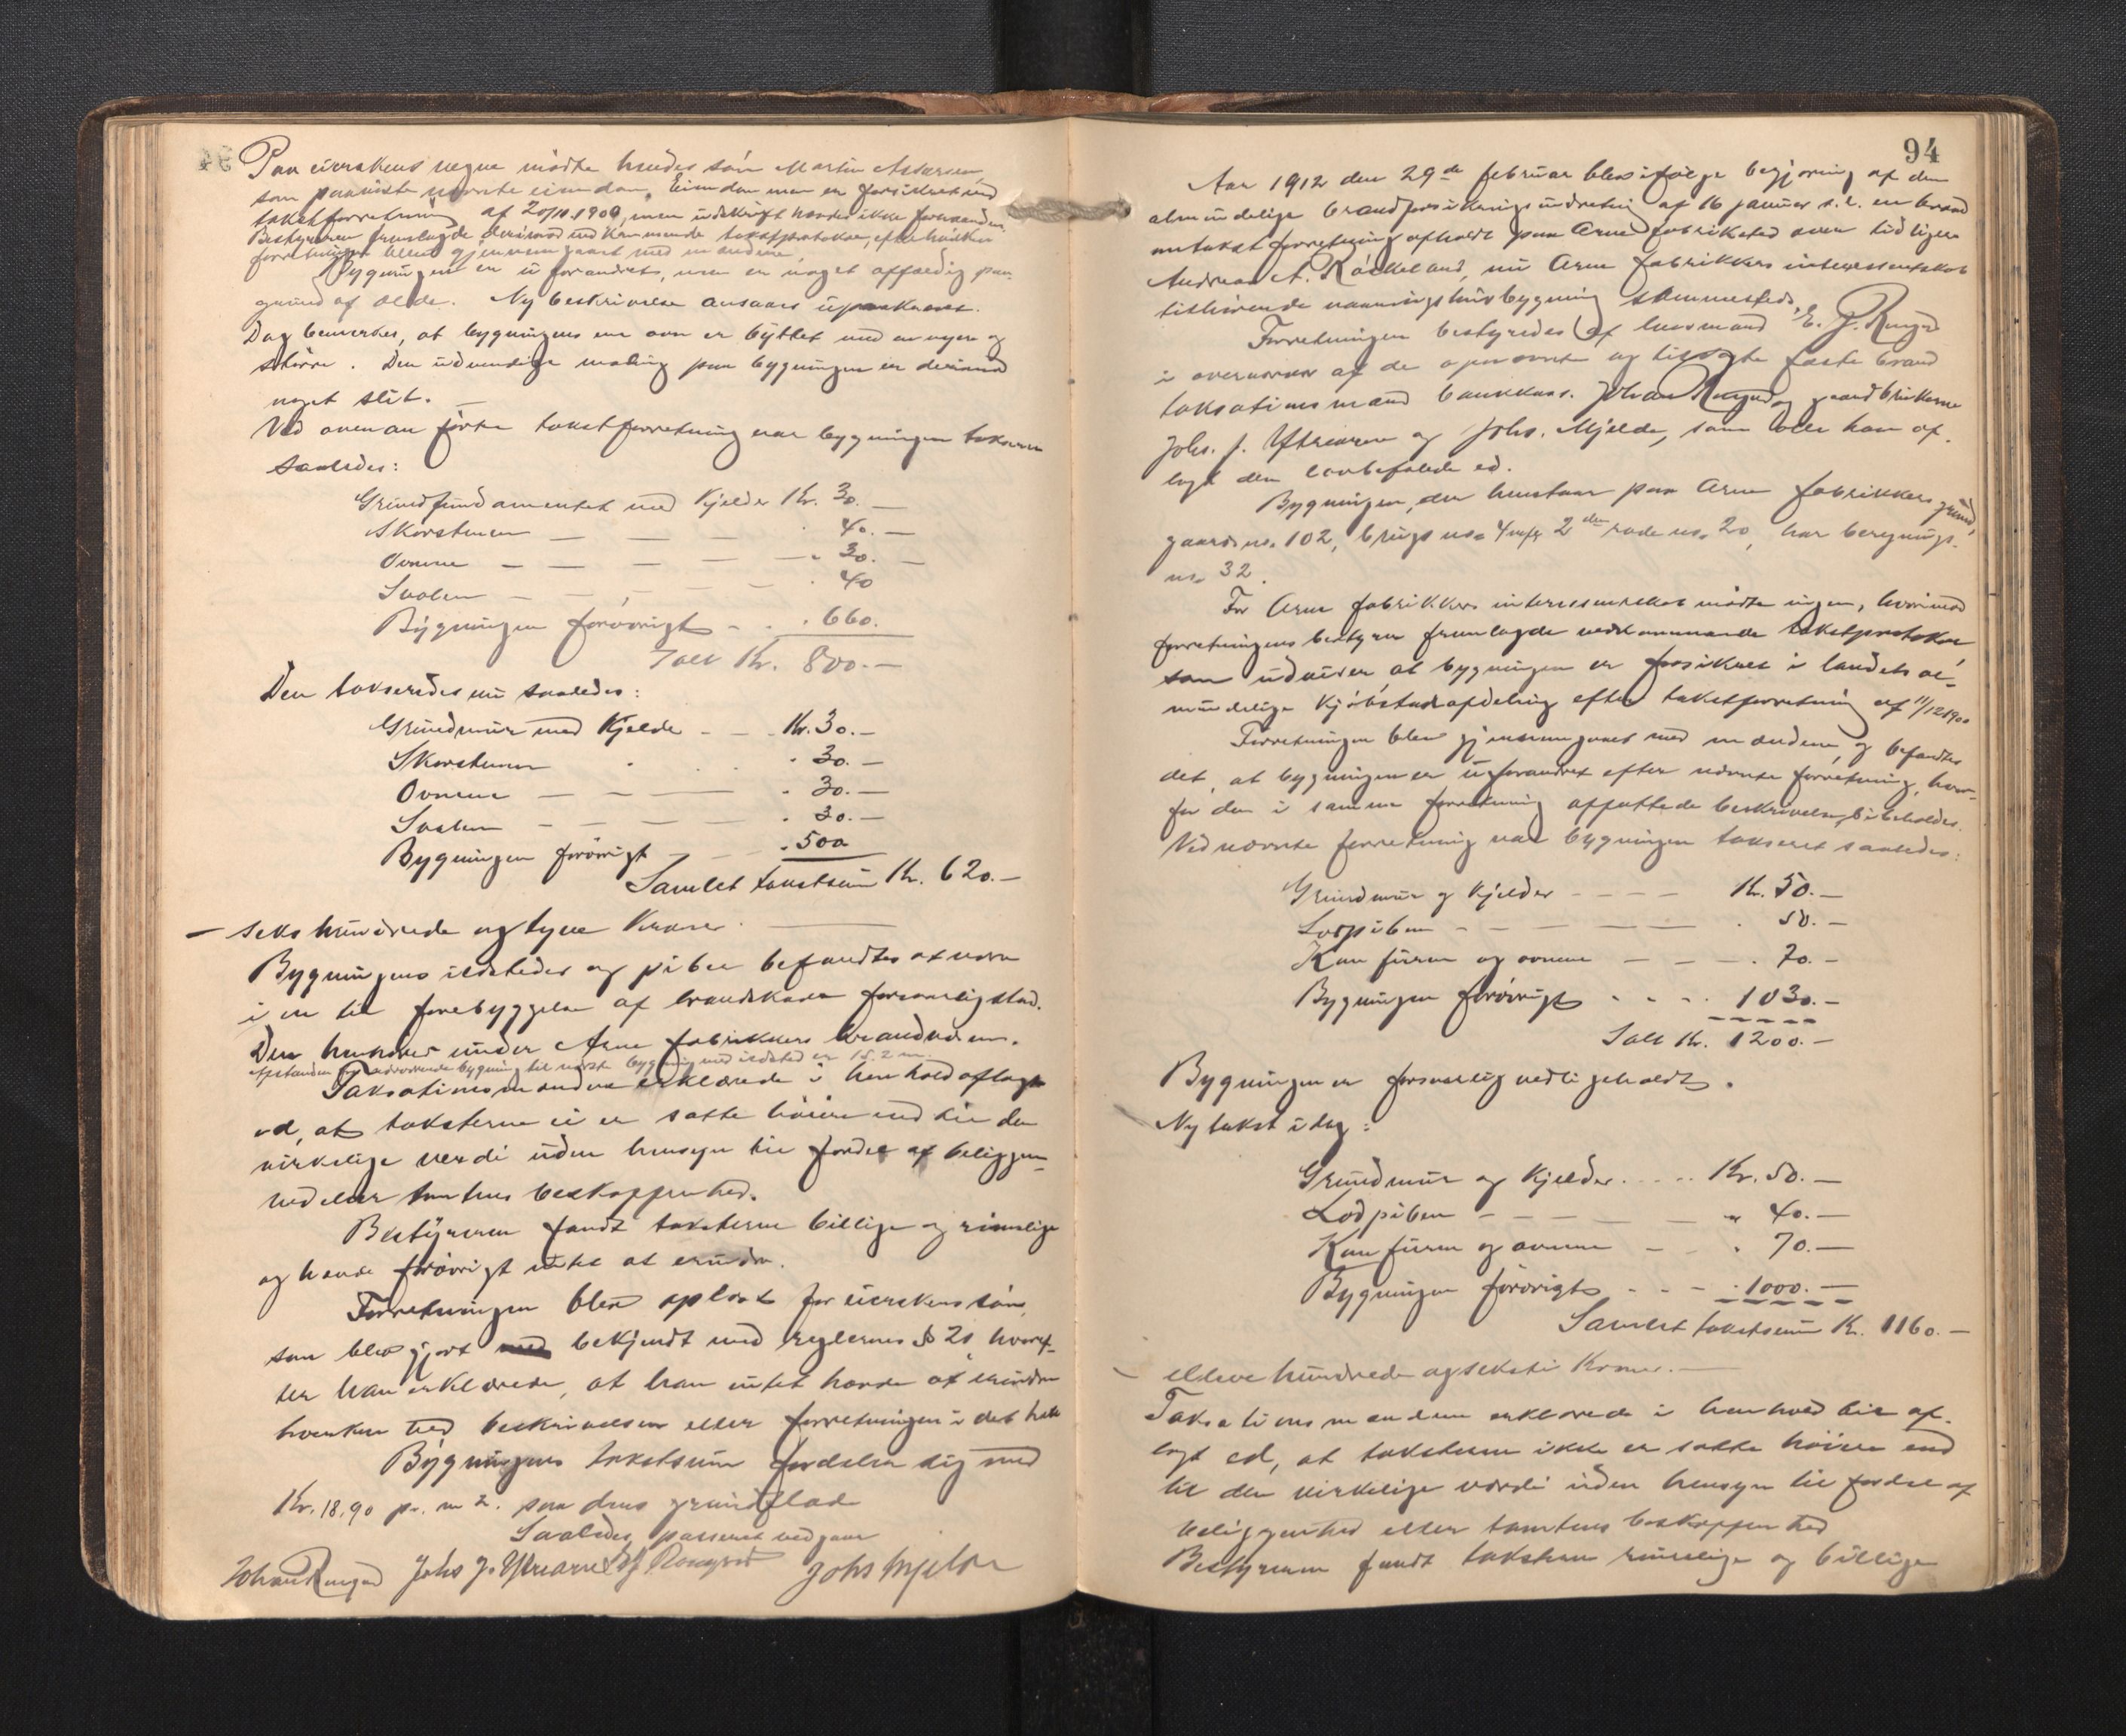 Paa eierskens vegne mødte hendes søn Martin
som paaviste nævnte eiendom. Eiendommen er forsikret ved
takstforretning af 20/10 1900, men udskrift havdes ikke
Bestyreren fremlagde derimod vedkommende takstprotokol, efter hvilken
forretningen blev gjennemgaaet med mændene.
Bygningen er uforandret, men er noget affældig paa
grund af ælde. Ny beskrivelse ansaaes upaakrævet.
Dog bemerkes, at bygningens ene ovn er byttet med en nyere og
større. Den udvendige maling paa bygningen er derimod
noget slit.
Ved ovenanførte takstforretning var bygningen
saaledes:
Grundfundamentet med kjelder Kr. 30.—
Skorstenen — — — 40.—
Ovnene — — — — 30.—
Svalen — — — 40
Bygningen forøvrigt - - 660.
Ialt Kr. 800.—
Den takseredes nu saaledes:
Grundmur med Kjelder - - Kr. 30.—
Skorstenen . . . 30.—
Ovnene — — — 30.—
Svalen — — — — 30.—
Bygningen forøvrigt — - 500
Samlet takstsum Kr. 620.—
— seks hundrede og tyve Kroner. —
Bygningens ildsteder og piber befandtes at være
i en til forebyggelse af brandskade forsvarlig stand.
Den henhører under Arne fabrikkers brandvæsen.
Afstanden fra nærværende bygning til næste bygning med ildsted er 15.2 m.
Taksationsmændene erklærede i henhold aflagt
ed, at taksterne ei er satte høiere end til den
virkelige verdi uden hensyn til fordel af beliggen-
hed eller tomtens beskaffenhed.
Bestyreren fandt taksterne billige og rimelige
og havde forøvrigt intet at erindre.
Forretningen blev oplæst for eierskens søn,
som blev gjort bekjendt med reglernes § 20, hvoref-
ter han erklærede, at han intet havde at erindre
hverken ved beskrivelsen eller forretningen i det hele
Bygningens takstsum fordeler sig med
Kr. 18,90 pr. m 2. paa dens grundflade
Saaledes passeret vedgaar
Johan Ringad Johs J. Ytrearne Johs Mjelde
94
Aar 1912 den 29de februar blev ifølge begjæring af den
almindelige brandforsikringsindretning af 16 januar d. å. en brand
omtakstforretning afholdt paa Arne fabriksted over tidligere
Andreas A. Røckeland, nu Arne fabrikkers interessentskab
tilhørende vaaningshusbygning sammesteds.
Forretningen bestyredes af lensmand E. J.
i overvær af de opnævnte og tilsagte faste brand
taksationsmænd bankkass. Johan Ringad og gaardbrukerne
Johs. J. Ytrearne og Johs. Mjelde, som alle har af-
lagt den lovbefalede ed.
Bygningen, der henstaar paa Arne fabrikkers grund,
gaards no. 102, brugs no. 4 2den rode no. 20, har beregnings-
no. 32.
For Arne fabrikkers interessentskab mødte ingen, hvorimod
forretningens bestyrer fremlagde vedkommende takstprotokol,
som udviser, at bygningen er forsikret i landets al-
mindelige kjøbstadafdeling efter takstforretning af 11/12 1900
Forretningen blev gjennemgaaet med mændene, og befandtes
det, at bygningen er uforandret efter nævnte forretning, hvor-
for den i samme forretning affattede beskrivelse bibeholdes.
Ved nævnte forretning var bygningen takseret saaledes:
Grundmur og kjelder - - - - Kr. 50.—
Lodpiben - — — — — . 50.—
Komfuren og ovnene — — — . 70.—
Bygningen forøvrigt . - . - 1030.—
Ialt Kr. 1200.—
Bygningen er forsvarlig vedligeholdt.
Ny takst idag:
Grundmur og Kjelder..... Kr. 50.—
Lodpiben — — — — " 40.—
Komfuren og ovnene — - . 70.—
Bygningen forøvrigt . - - . 1000.—
Samlet takstsum Kr. 1160.—
— elleve hundrede og seksti Kroner.—
Taksationsmændene erklærede i henhold til af-
lagt ed, at taksterne ikke er satte høiere end
til den virkelige værdi uden hensyn til fordel af
beliggenhed eller tomtens beskaffenhed
Bestyreren fandt taksterne rimelige og billige